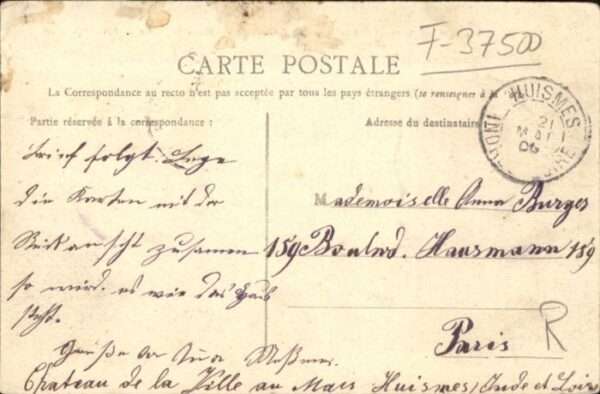 F-37500
CARTE POSTALE
La Correspondance au recto n'est pas acceptée par tous les pays étrangers (se renseigner à la
Partie réservée à la correspondance :
Adresse du destinataire
HUISMES
21
MAI
06
Brief folgt. Lege
die Karten mit der
Rückansicht zusammen
so wird es wie das Haus
steht.
Grüße
Mademoiselle Anna Burges
159 Boulwd. Hausmann 159
Paris
R
Chateau de la Ville au Mars Huismes, Inde et Loire